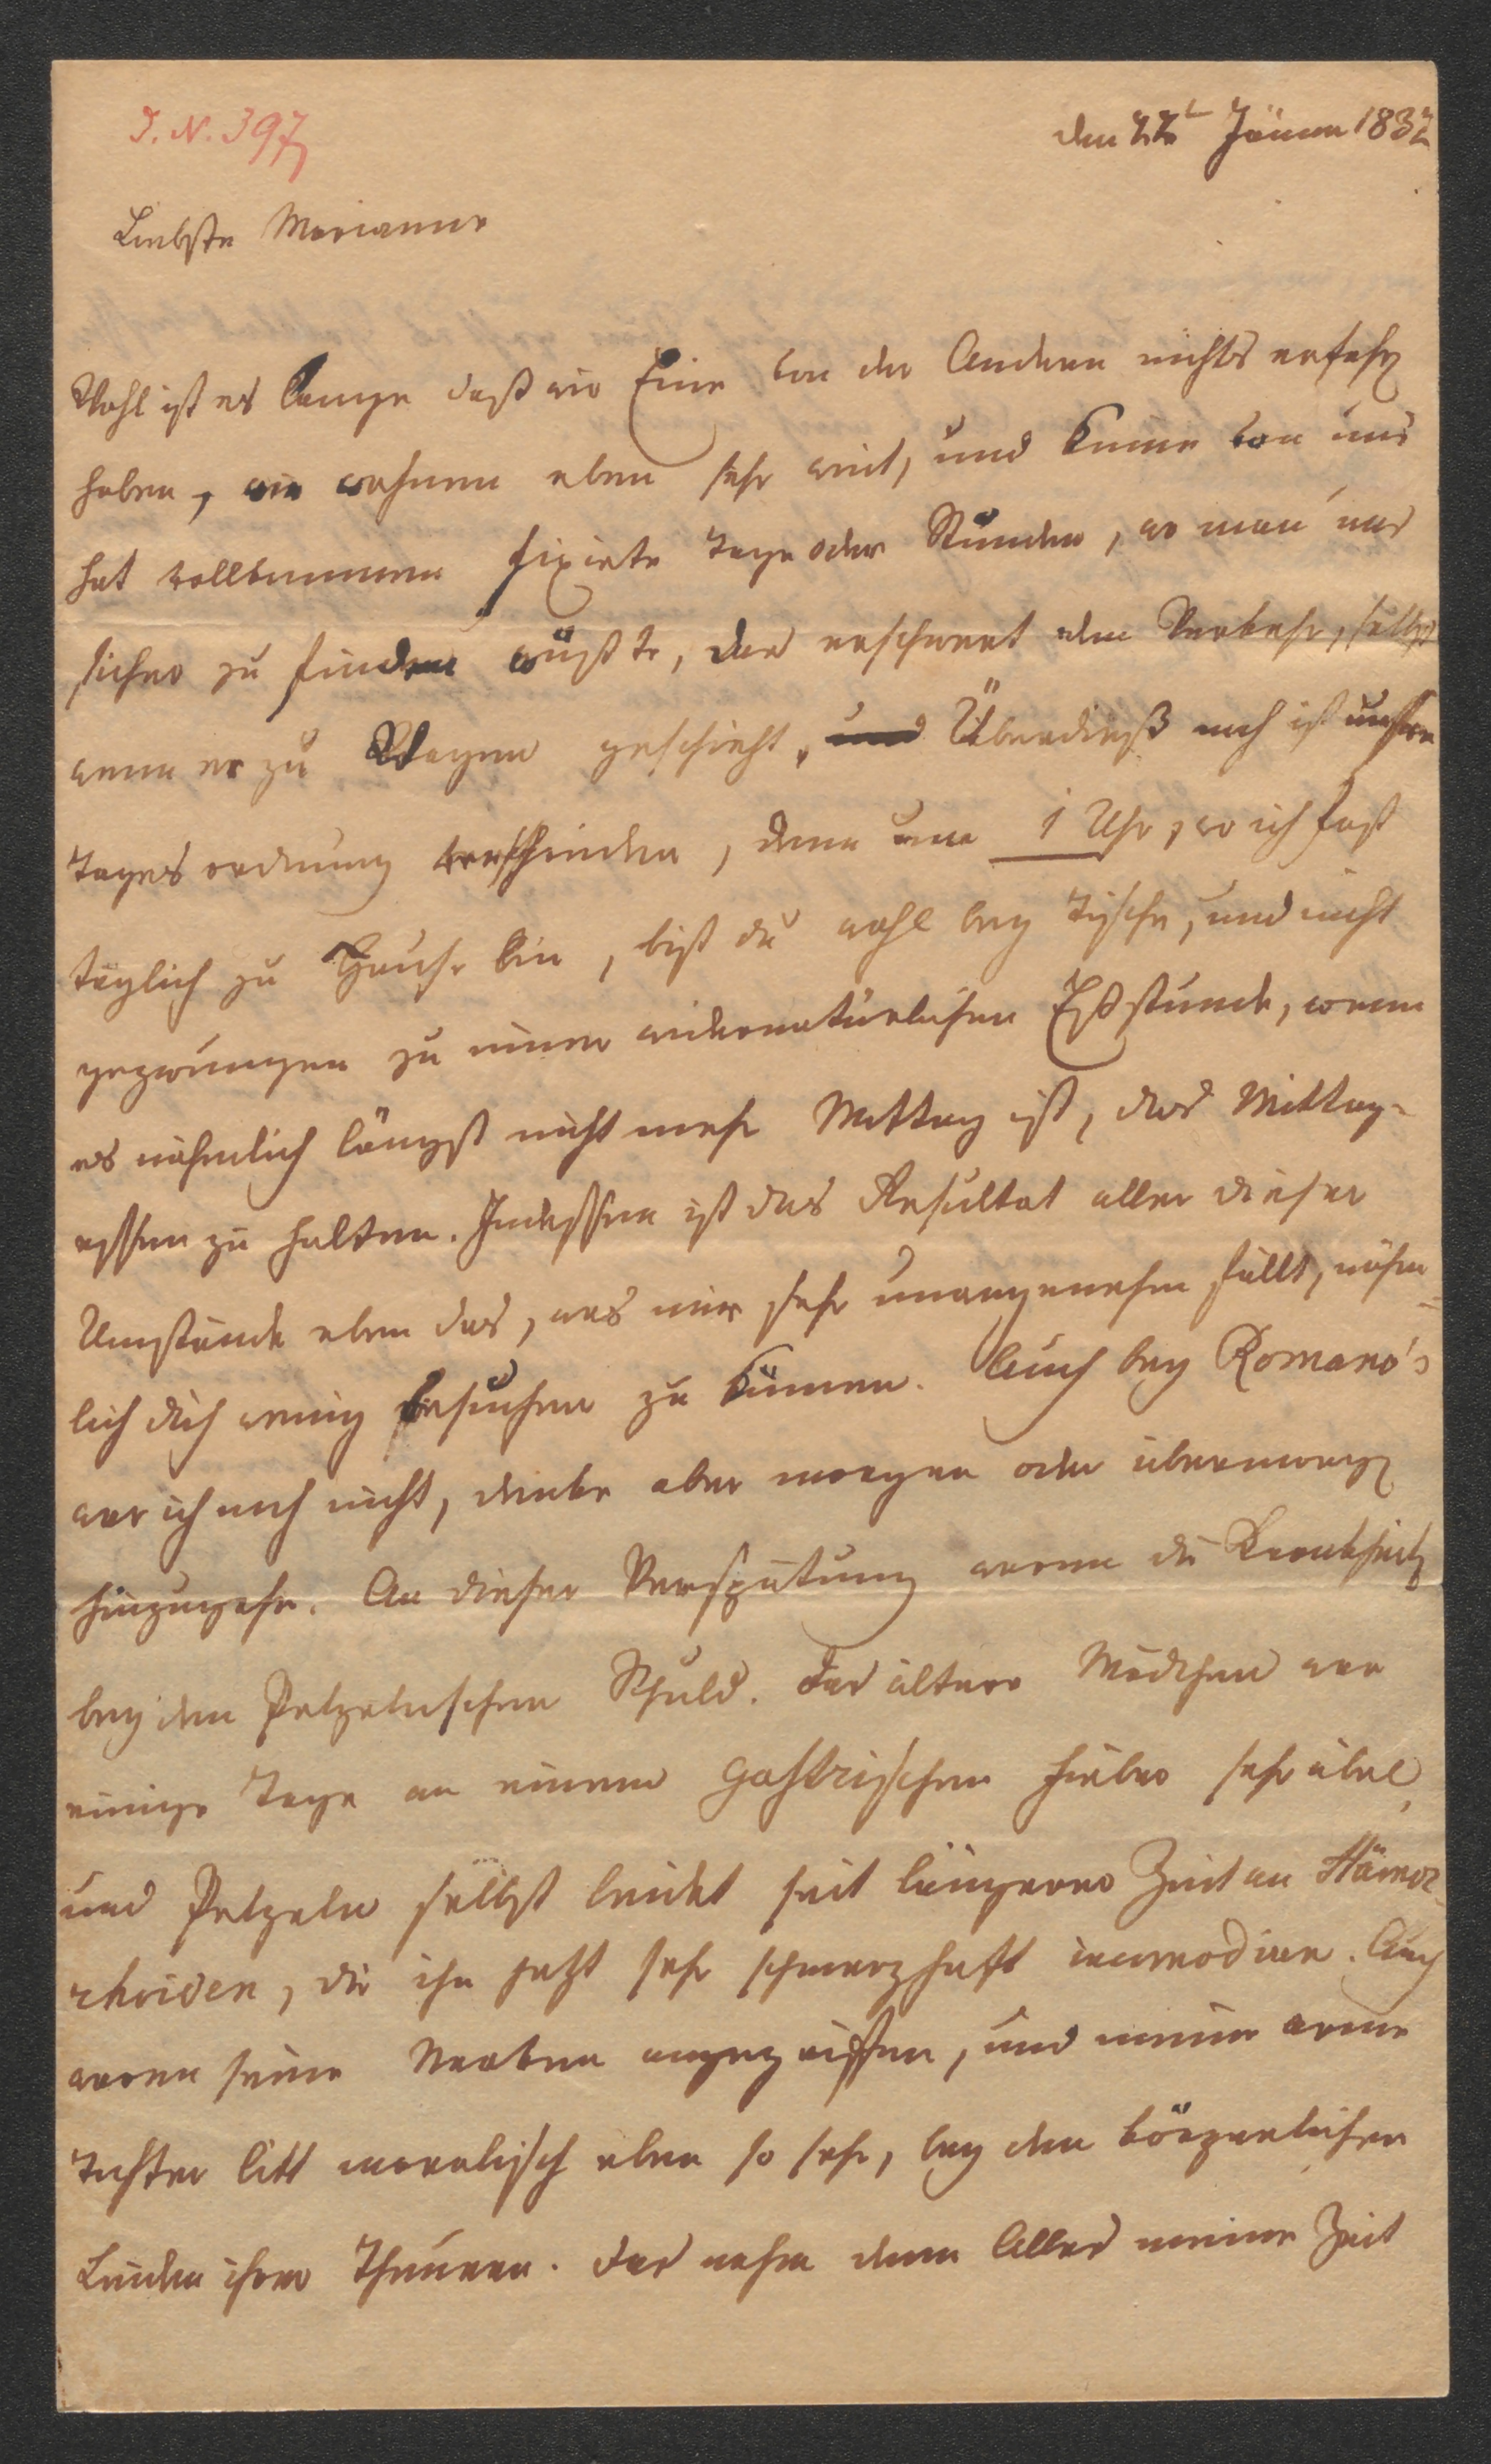 J. N. 397
den 22t Jänner 1832
Liebste Marianne
Wohl ist es lange daß wir Eine von der Andern nichts erfahren
haben, wir wohnen eben sehr weit, und keine von uns
hat vollkommen fixirte Tage oder Stunden, wo man uns
sicher zu finden wüßte, das erschwert den Verkehr, selbst
wenn er zu Wagen geschieht, und Überdieß noch ist unsere
Tagesordnung verschieden, denn um 1 Uhr, wo ich fast
täglich zu Hause bin, bist du wohl bey Tische, und nicht
gezwungen zu einer widernatürlichen Eßstunde, wenn
es nähmlich längst nicht mehr Mittag ist, das Mittag-
essen zu halten. Indessen ist das Resultat aller dieser
Umstände eben das, was mir sehr unangenehm fällt, nähm=
lich dich wenig besuchen zu können. Auch bey Romano's
war ich noch nicht, denke aber morgen oder übermorgen
hinzugehn. An dieser Verspätung waren die Krankheiten
bey den Pelzelnschen Schuld. Das ältere Mädchen war
einige Tage an einem gastrischen Fieber sehr übel,
und Pelzeln selbst leidet seit längerer Zeit an Hämor-
rhoiden, die ihn jetzt sehr schmerzhaft incomodiren. Auch
waren seine Nerven angegriffen, und meine arme
Tochter litt moralisch eben so sehr, bey den körperlichen
Leiden ihrer Theuren. Das nahm denn Alles meine Zeit